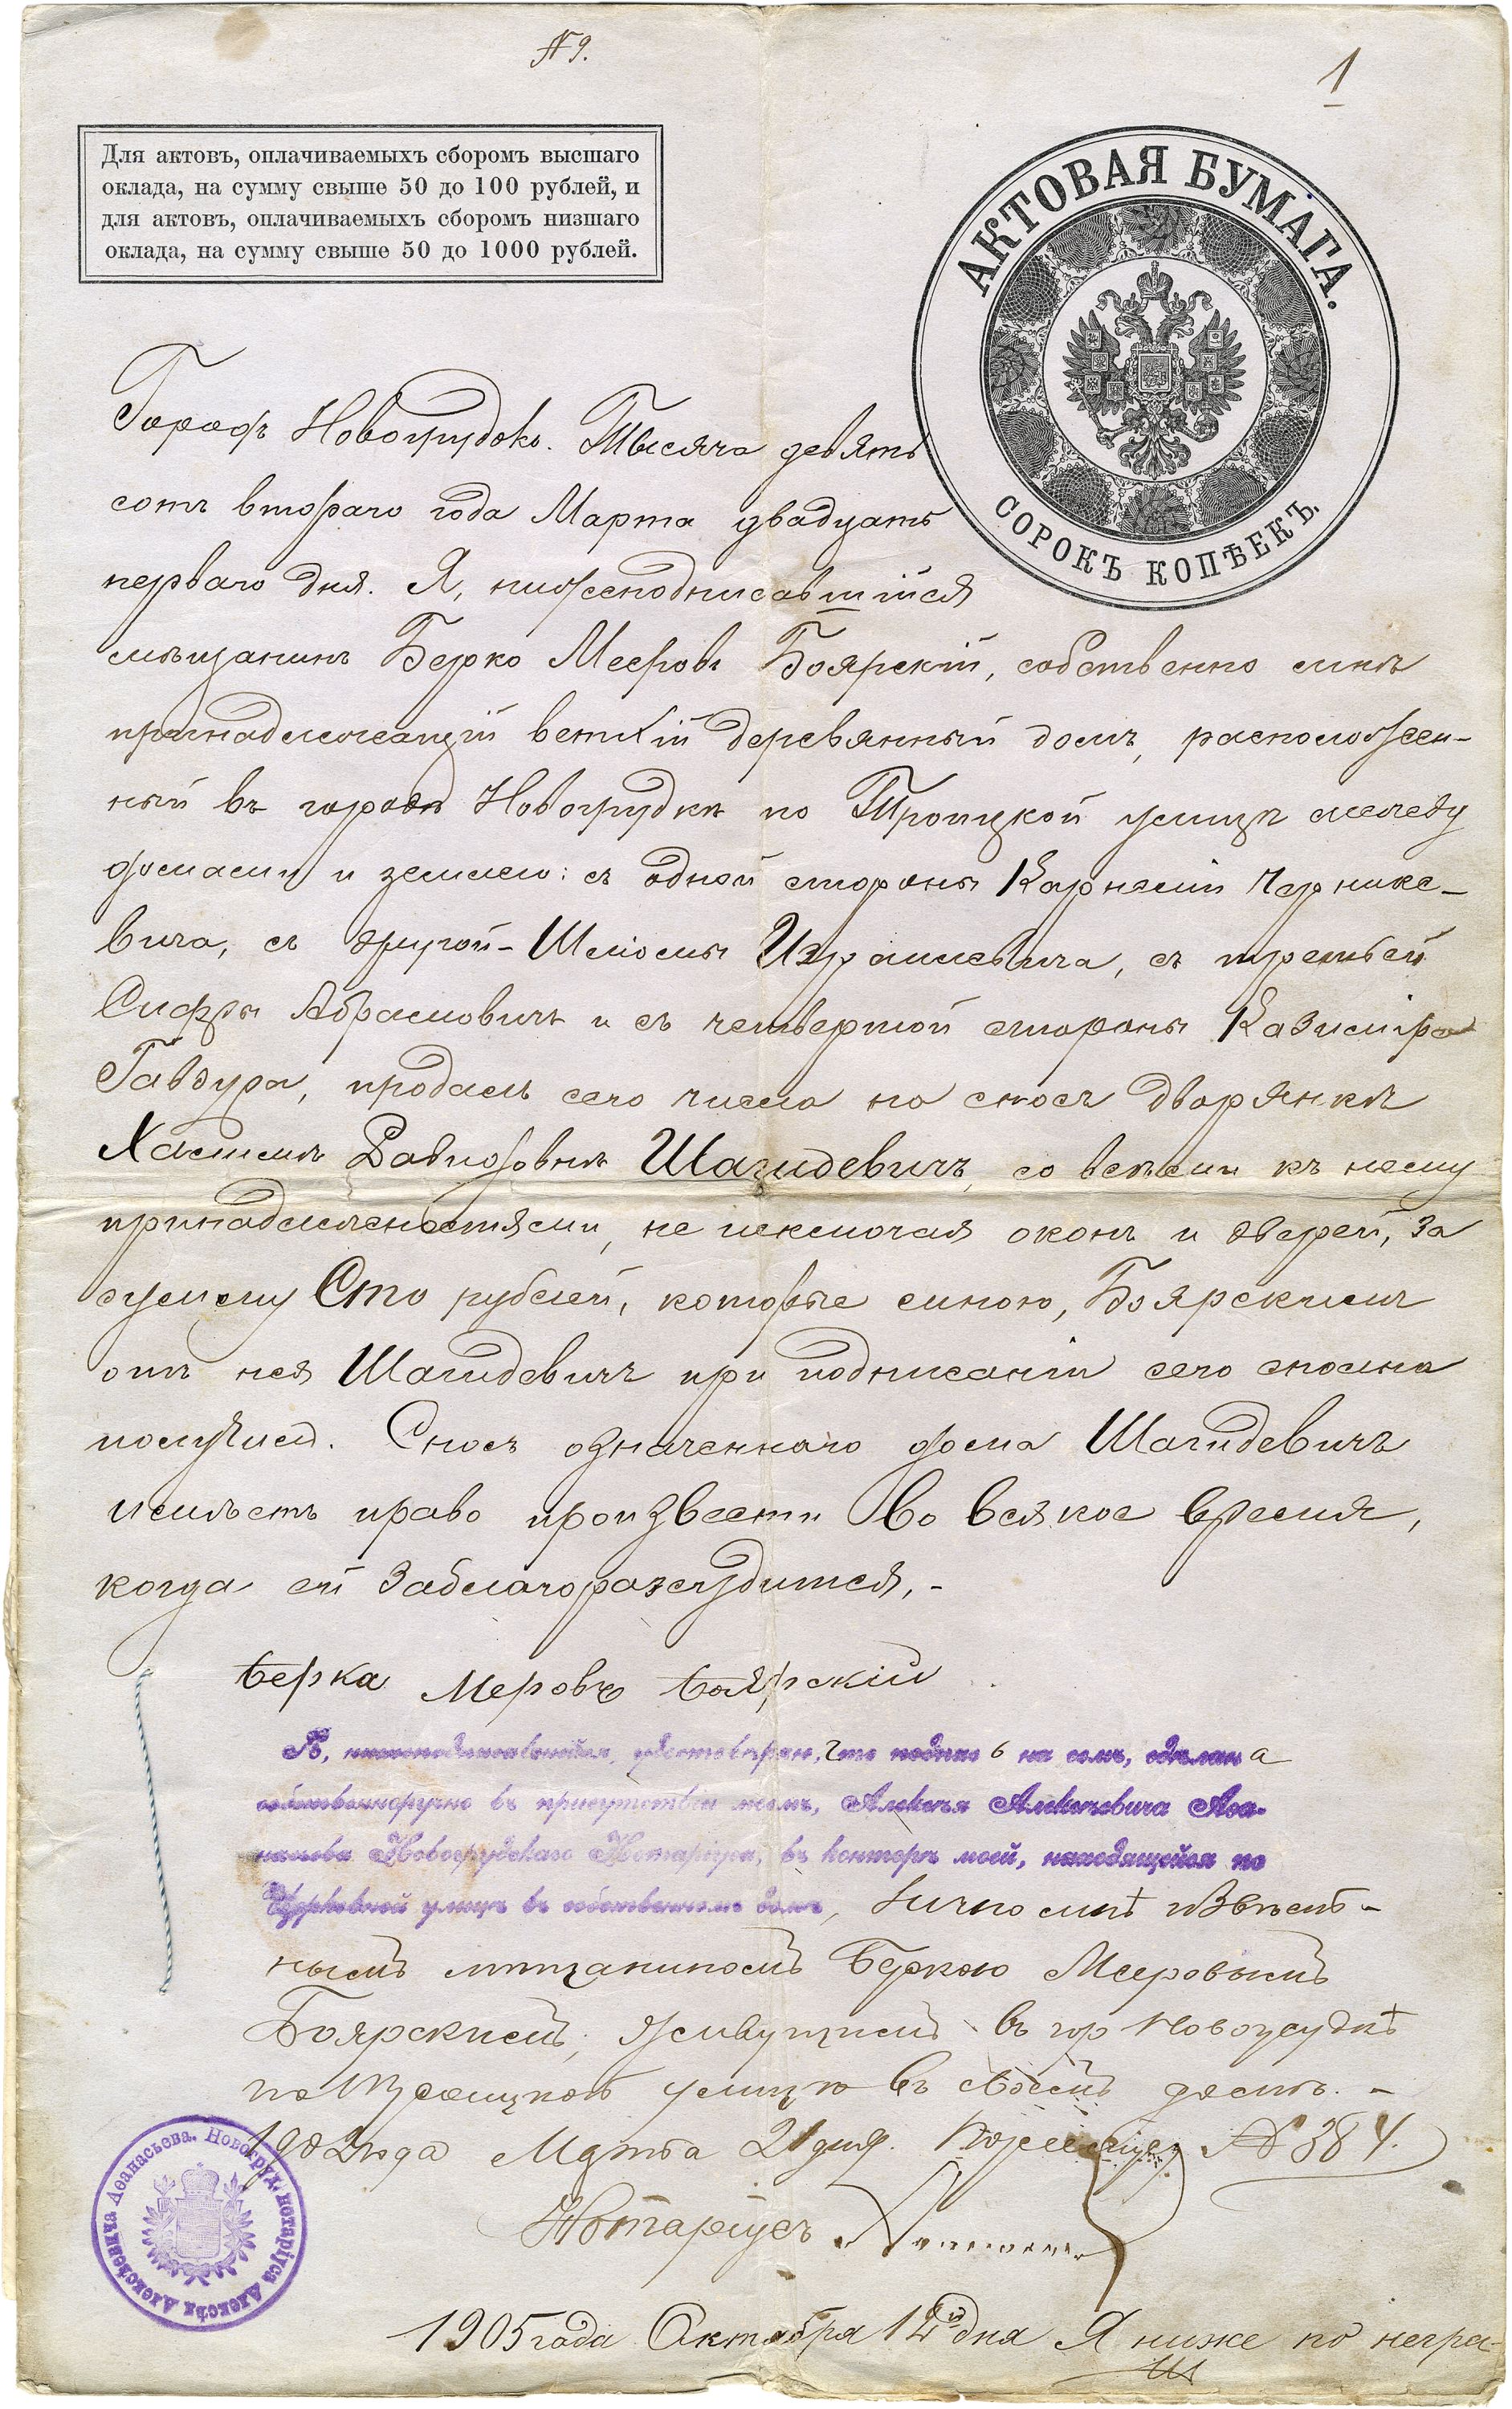 № 9.
1
Для актовъ, оплачиваемыхъ сборомъ высшаго
оклада, на сумму свыше 50 до 100 рублей, и
для актовъ, оплачиваемыхъ сборомъ низшаго
оклада, на сумму свыше 50 до 1000 рублей.
АКТОВАЯ БУМАГА.
СОРОКЪ КОПѢЕКЪ.
Городъ Новогрудокъ. Тысяча девять
сотъ второго года Марта двадцать
перваго дня. Я, нижеподписавшійся
мѣщанинъ Берко Мееровъ Боярскій, собственно мнѣ
принадлежащій ветхій деревянный домъ, расположен-
ный въ городѣ Новогрудкѣ по Троицкой улицѣ между
домами и землею: съ одной стороны Карнелія Чернике-
вича, съ другой - Шліомы Израилевича, съ третьей
Сифры Абрамовичъ и съ четвертой стороны Казиміра
Гавдура, продалъ сего числа на сносъ дворянкѣ
Хасимѣ Давидовнѣ Шагидевичъ, со всѣми къ нему
принадлежностями, не исключая оконъ и дверей, за
сумму Сто рублей, которые мною, Боярскимъ
отъ нея Шагидевичъ при подписаніи сего сполна
получилъ. Сносъ означеннаго дома Шагидевичъ
имѣетъ право произвести во всякое время,
когда ей заблагоразсудится. -
Берка Меровъ Боярскій
Я, нижеподписавшійся, удостовѣряю, что подпись на семъ, сдѣлана
собственноручно въ присутствіи моемъ, Алексѣя Алексѣевича Аѳа-
насьева Новогрудскаго Нотаріуса, въ конторѣ моей, находящейся по
Церковной улицѣ въ собственномъ домѣ, лично мнѣ извѣст-
нымъ мѣщаниномъ Беркою Мееровымъ
Боярскимъ, живущимъ въ гор Новогрудкѣ
по Троицкой улицѣ въ своемъ домѣ. -
1902 года Марта 21 дня. По реестру № 384.
Нотаріусъ
Новогруд. нотаріуса Алексѣя Алексѣевича Аѳанасьева.
1905 года Октября 12 дня Я ниже по негра-